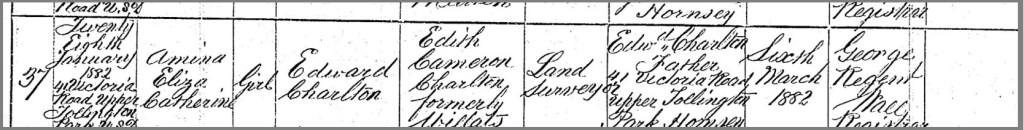 Road U.S.D
Hornsey
Registrar
37
Twenty
Eighth
January
1882
41 Victoria
Road Upper
Tollington
Park U.S.D
Amina
Eliza
Catherine
Girl
Edward
Charlton
Edith
Cameron
Charlton
formerly
Willats
Land
Surveyor
Edwd Charlton
Father
41 Victoria Road
Upper Tollington
Park Hornsey
Sixth
March
1882
George
Regent
Registrar